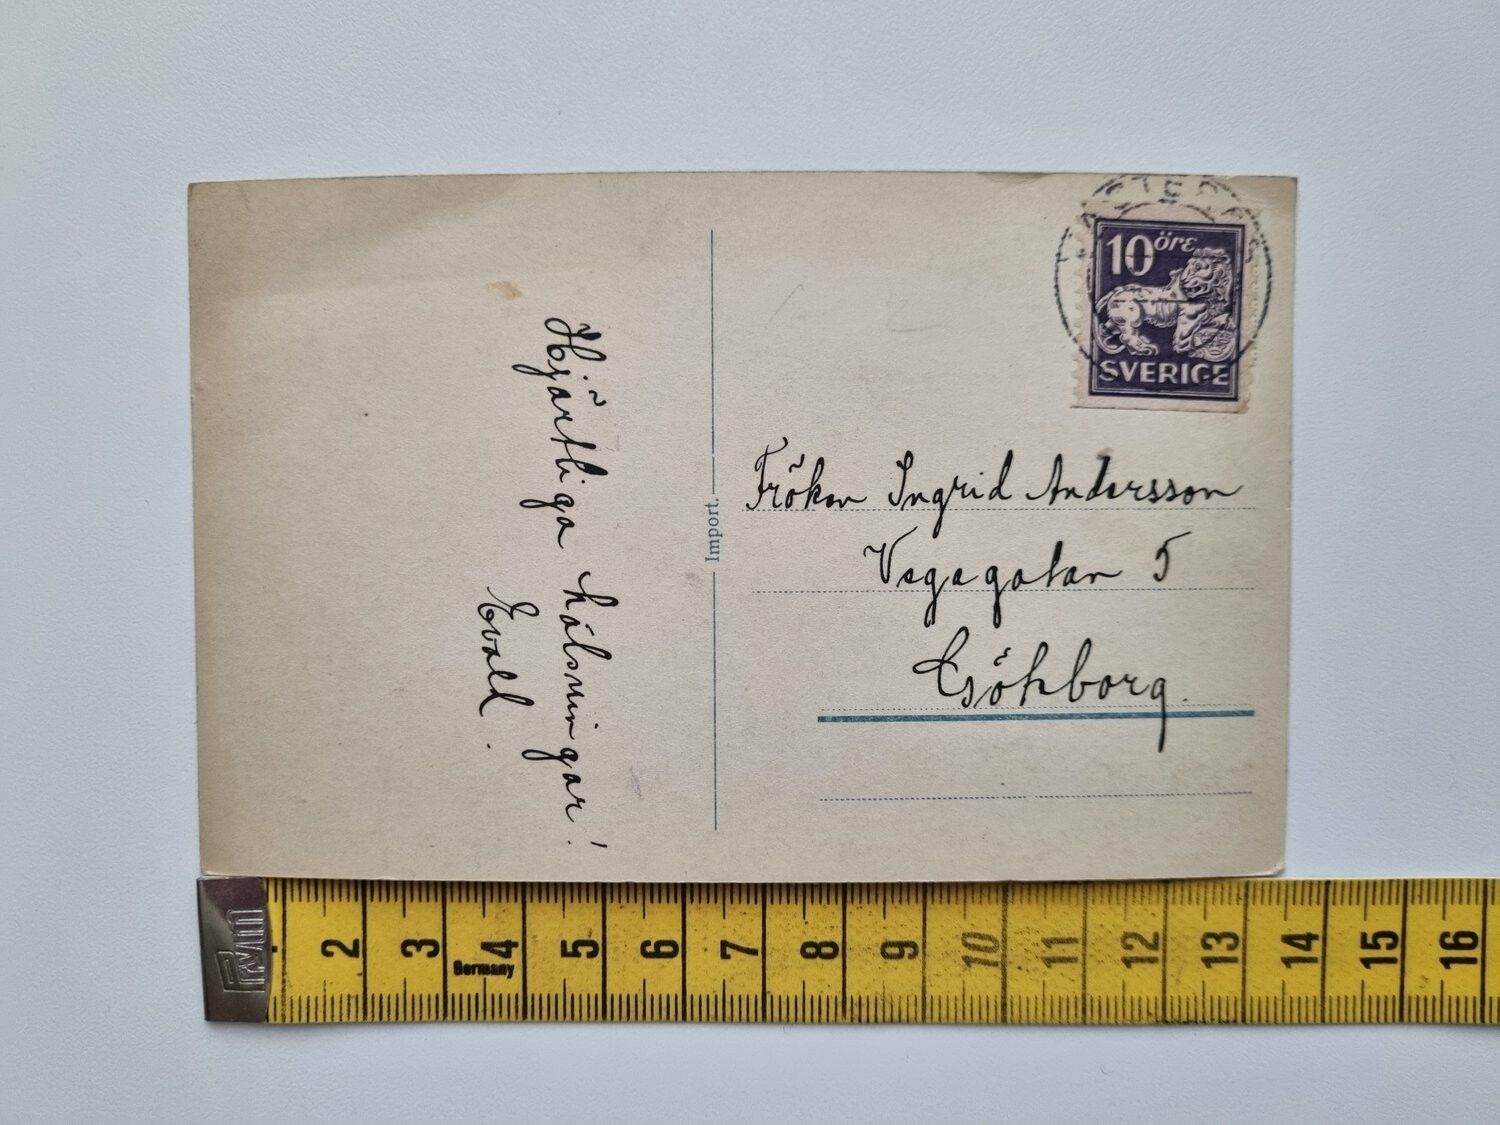 Hjärtliga hälsningar!
Evald.
Import.
10 öre
SVERIGE
Fröken Ingrid Andersson
Vegagatan 5
Göthborg.
2 3 4 5 6 7 8 9 10 11 12 13 14 15 16
Germany